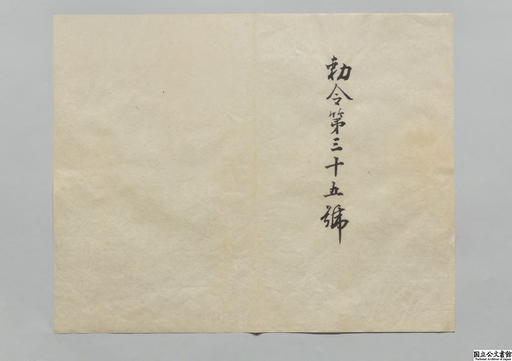 勅令第三十五號
国立公文書館
National Archives of Japan